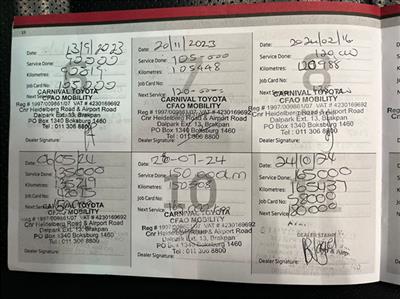 Date: 13/9/2023
Service Done: 90000
Kilometres: 90019
Job Card No:
Next Service:
CARNIVAL TOYOTA
CFAO MOBILITY
Reg # 1997/009861/07 VAT # 4230169692
Cnr Heidelberg Road & Airport Road
Dalpark Ext. 13, Brakpan
PO Box 1340 Boksburg 1460
Tel : 011 306 8800
Dealer Signature:
Date: 20/11/2023
Service Done: 105-000
Kilometres: 105448
Job Card No:
Next Service: 120-000
CARNIVAL TOYOTA
CFAO MOBILITY
Reg # 1997/009861/07 VAT # 4230169692
Cnr Heidelberg Road & Airport Road
Dalpark Ext. 13, Brakpan
PO Box 1340 Boksburg 1460
Tel : 011 306 8800
Dealer Signature:
Date: 2024/02/16
Service Done: 120 000
Kilometres: 120788
Job Card No:
Next Service:
CARNIVAL TOYOTA
CFAO MOBILITY
Reg # 1997/009861/07 VAT # 4230169692
Cnr Heidelberg Road & Airport Road
Dalpark Ext. 13, Brakpan
PO Box 1340 Boksburg 1460
Tel : 011 306 8800
Dealer Signature:
Date:
Service Done: 135000
Kilometres:
Job Card No:
Next Service:
CARNIVAL TOYOTA
CFAO MOBILITY
Reg # 1997/009861/07 VAT # 4230169692
Cnr Heidelberg Road & Airport Road
Dalpark Ext. 13, Brakpan
PO Box 1340 Boksburg 1460
Tel : 011 306 8800
Dealer Signature:
Date: 26-07-24
Service Done: 150 000km
Kilometres:
Job Card No:
Next Service:
CARNIVAL TOYOTA
CFAO MOBILITY
Reg # 1997/009861/07 VAT # 4230169692
Cnr Heidelberg Road & Airport Road
Dalpark Ext. 13, Brakpan
PO Box 1340 Boksburg 1460
Tel : 011 306 8800
Dealer Signature:
Date: 24/10/24
Service Done: 165000
Kilometres: 165437
Job Card No:
Next Service: 180000
DEALER STAMP
Dealer Signature: